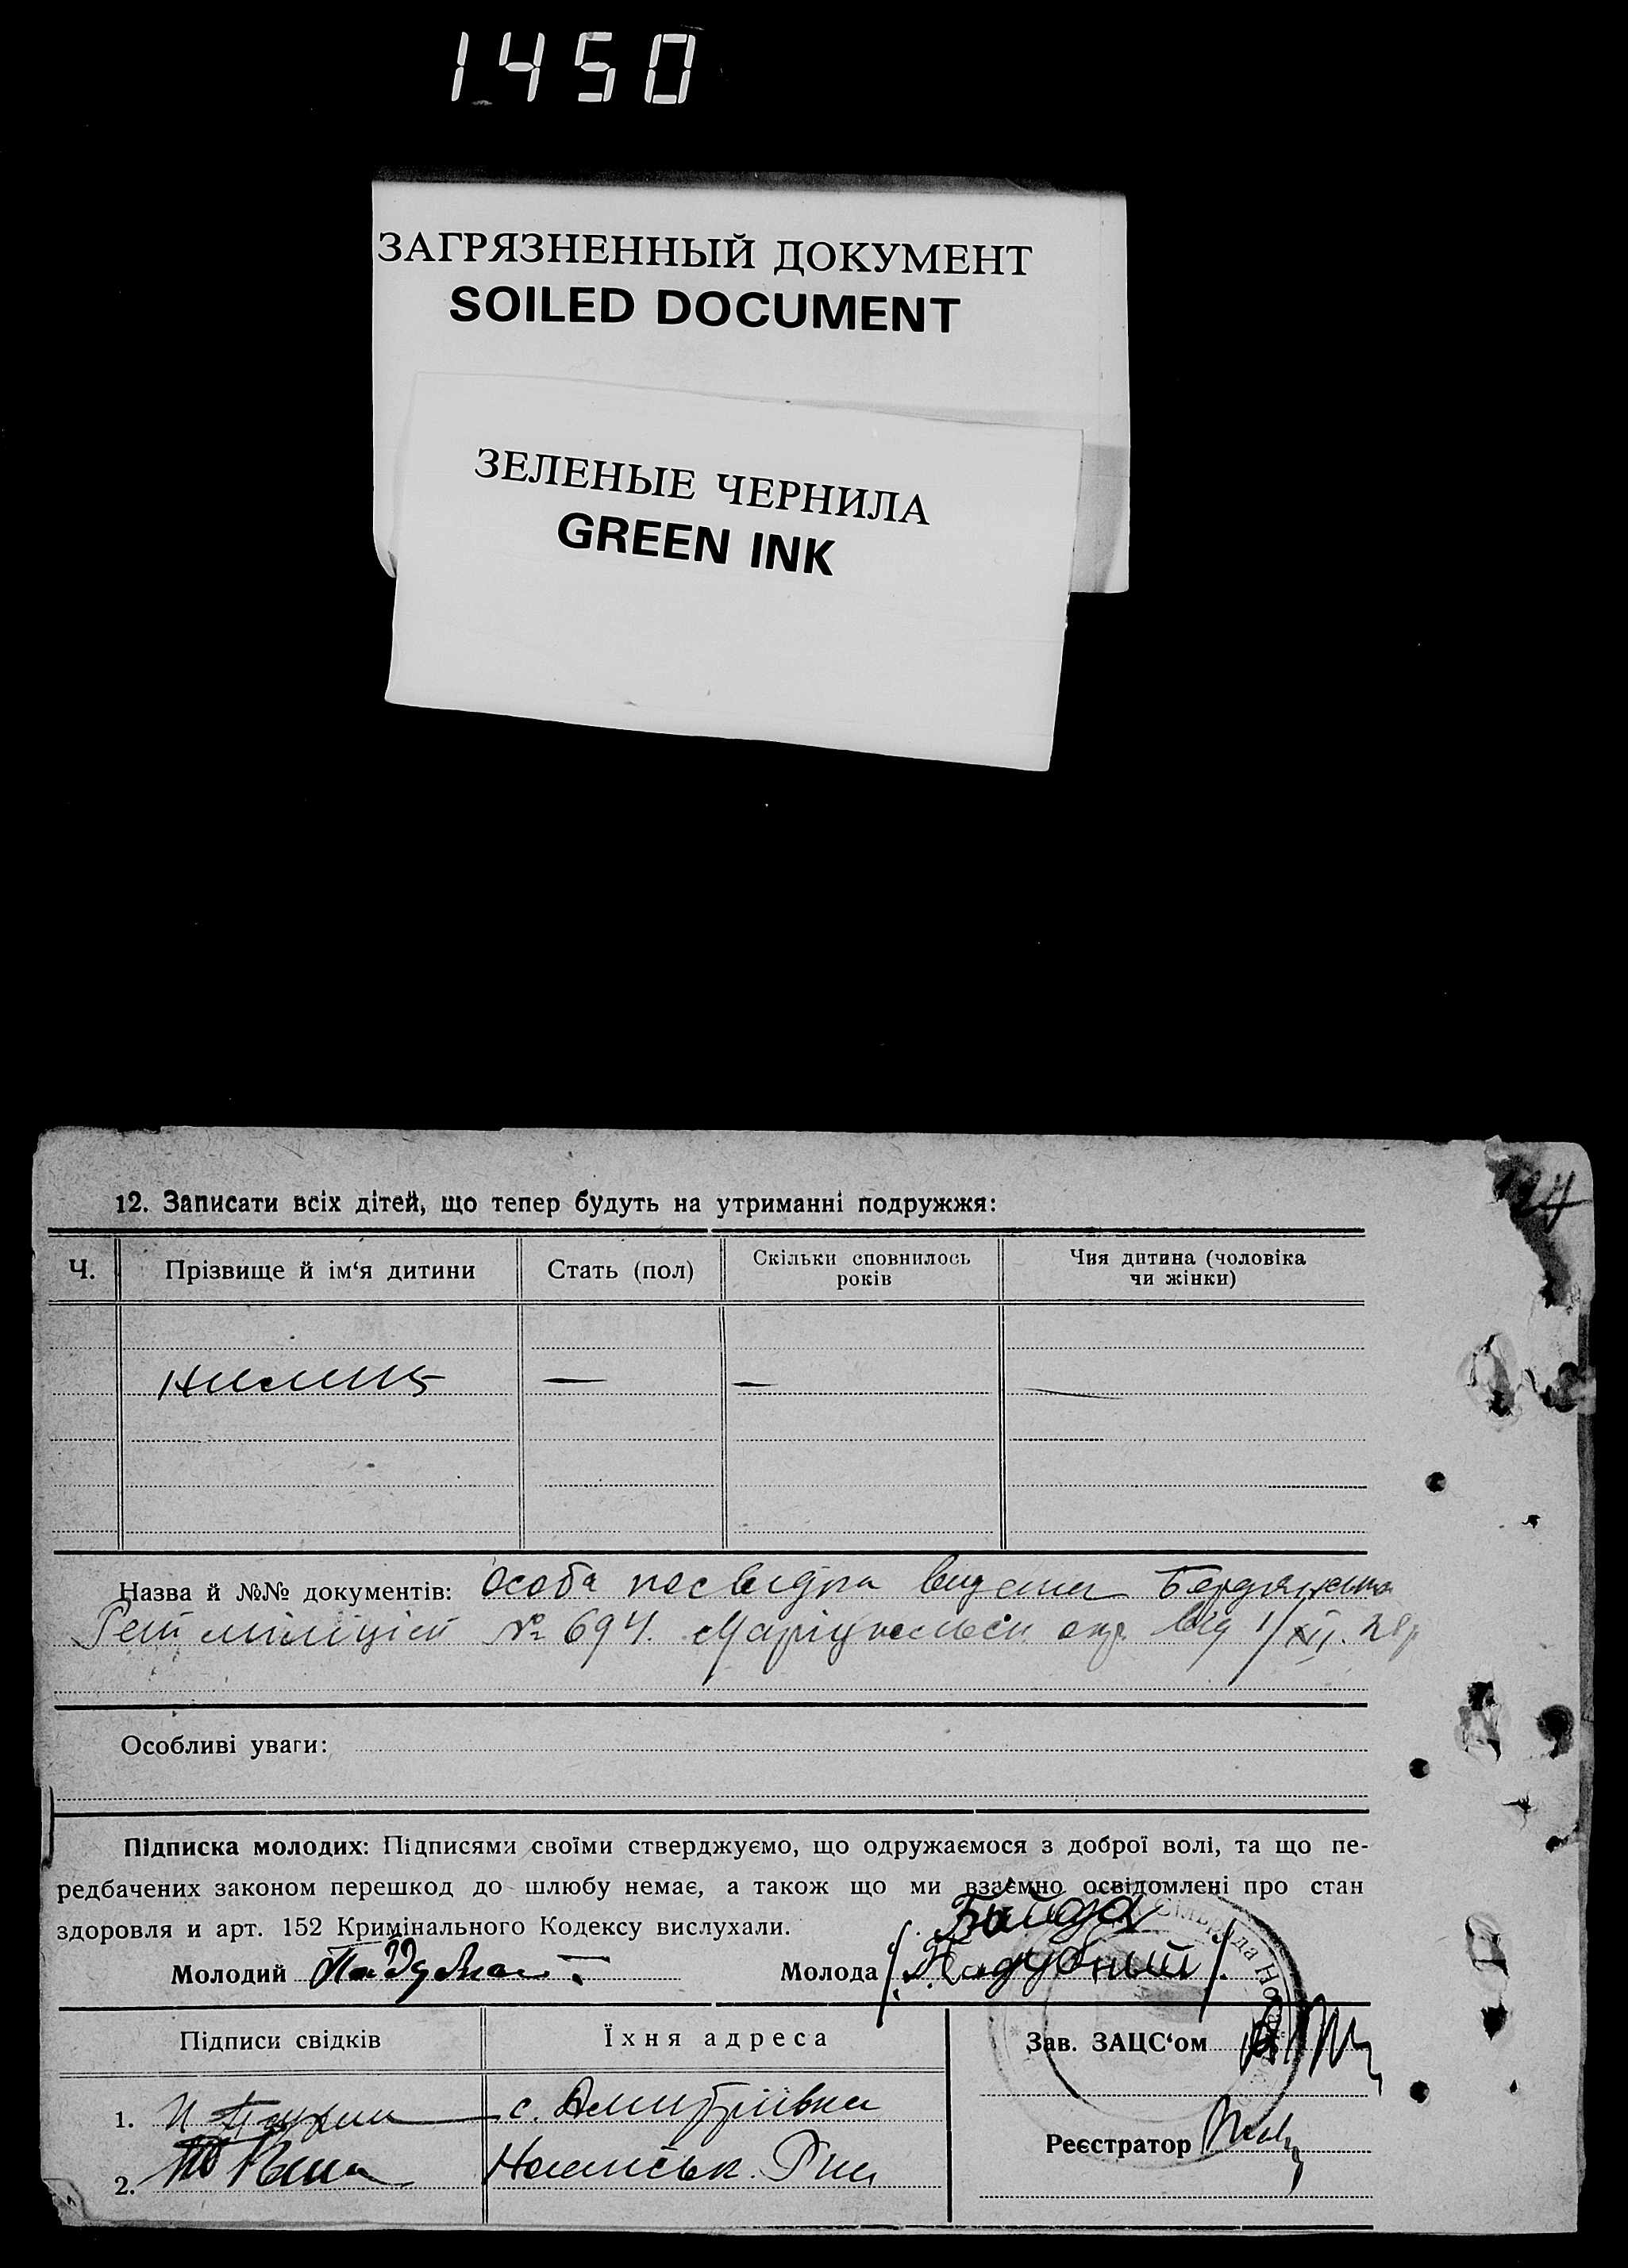 1450
ЗАГРЯЗНЕННЫЙ ДОКУМЕНТ
SOILED DOCUMENT
ЗЕЛЕНЫЕ ЧЕРНИЛА
GREEN INK
12. Записати всіх дітей, що тепер будуть на утриманні подружжя:
Ч. Прізвище й ім‘я дитини Стать (пол) Скільки сповнилось років Чия дитина (чоловіка чи жінки)
— —
Назва й №№ документів: особа посвідка видана
міліцією № 694. від 1/XII.
Особливі уваги:
Підписка молодих: Підписями своїми стверджуємо, що одружаємося з доброї волі, та що пе-
редбачених законом перешкод до шлюбу немає, а також що ми взаємно освідомлені про стан
здоровля и арт. 152 Кримінального Кодексу вислухали.
Байда
Молодий Молода
Підписи свідків Їхня адреса Зав. ЗАЦС‘ом
1. с. Дмитрівка
Реєстратор
2.